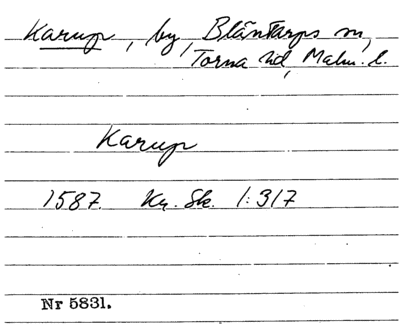 Karup, by, Bläntarps sn,
Torna hd, Malm. l.
Karup
1587. Kr. Sk. 1:317
Nr 5831.